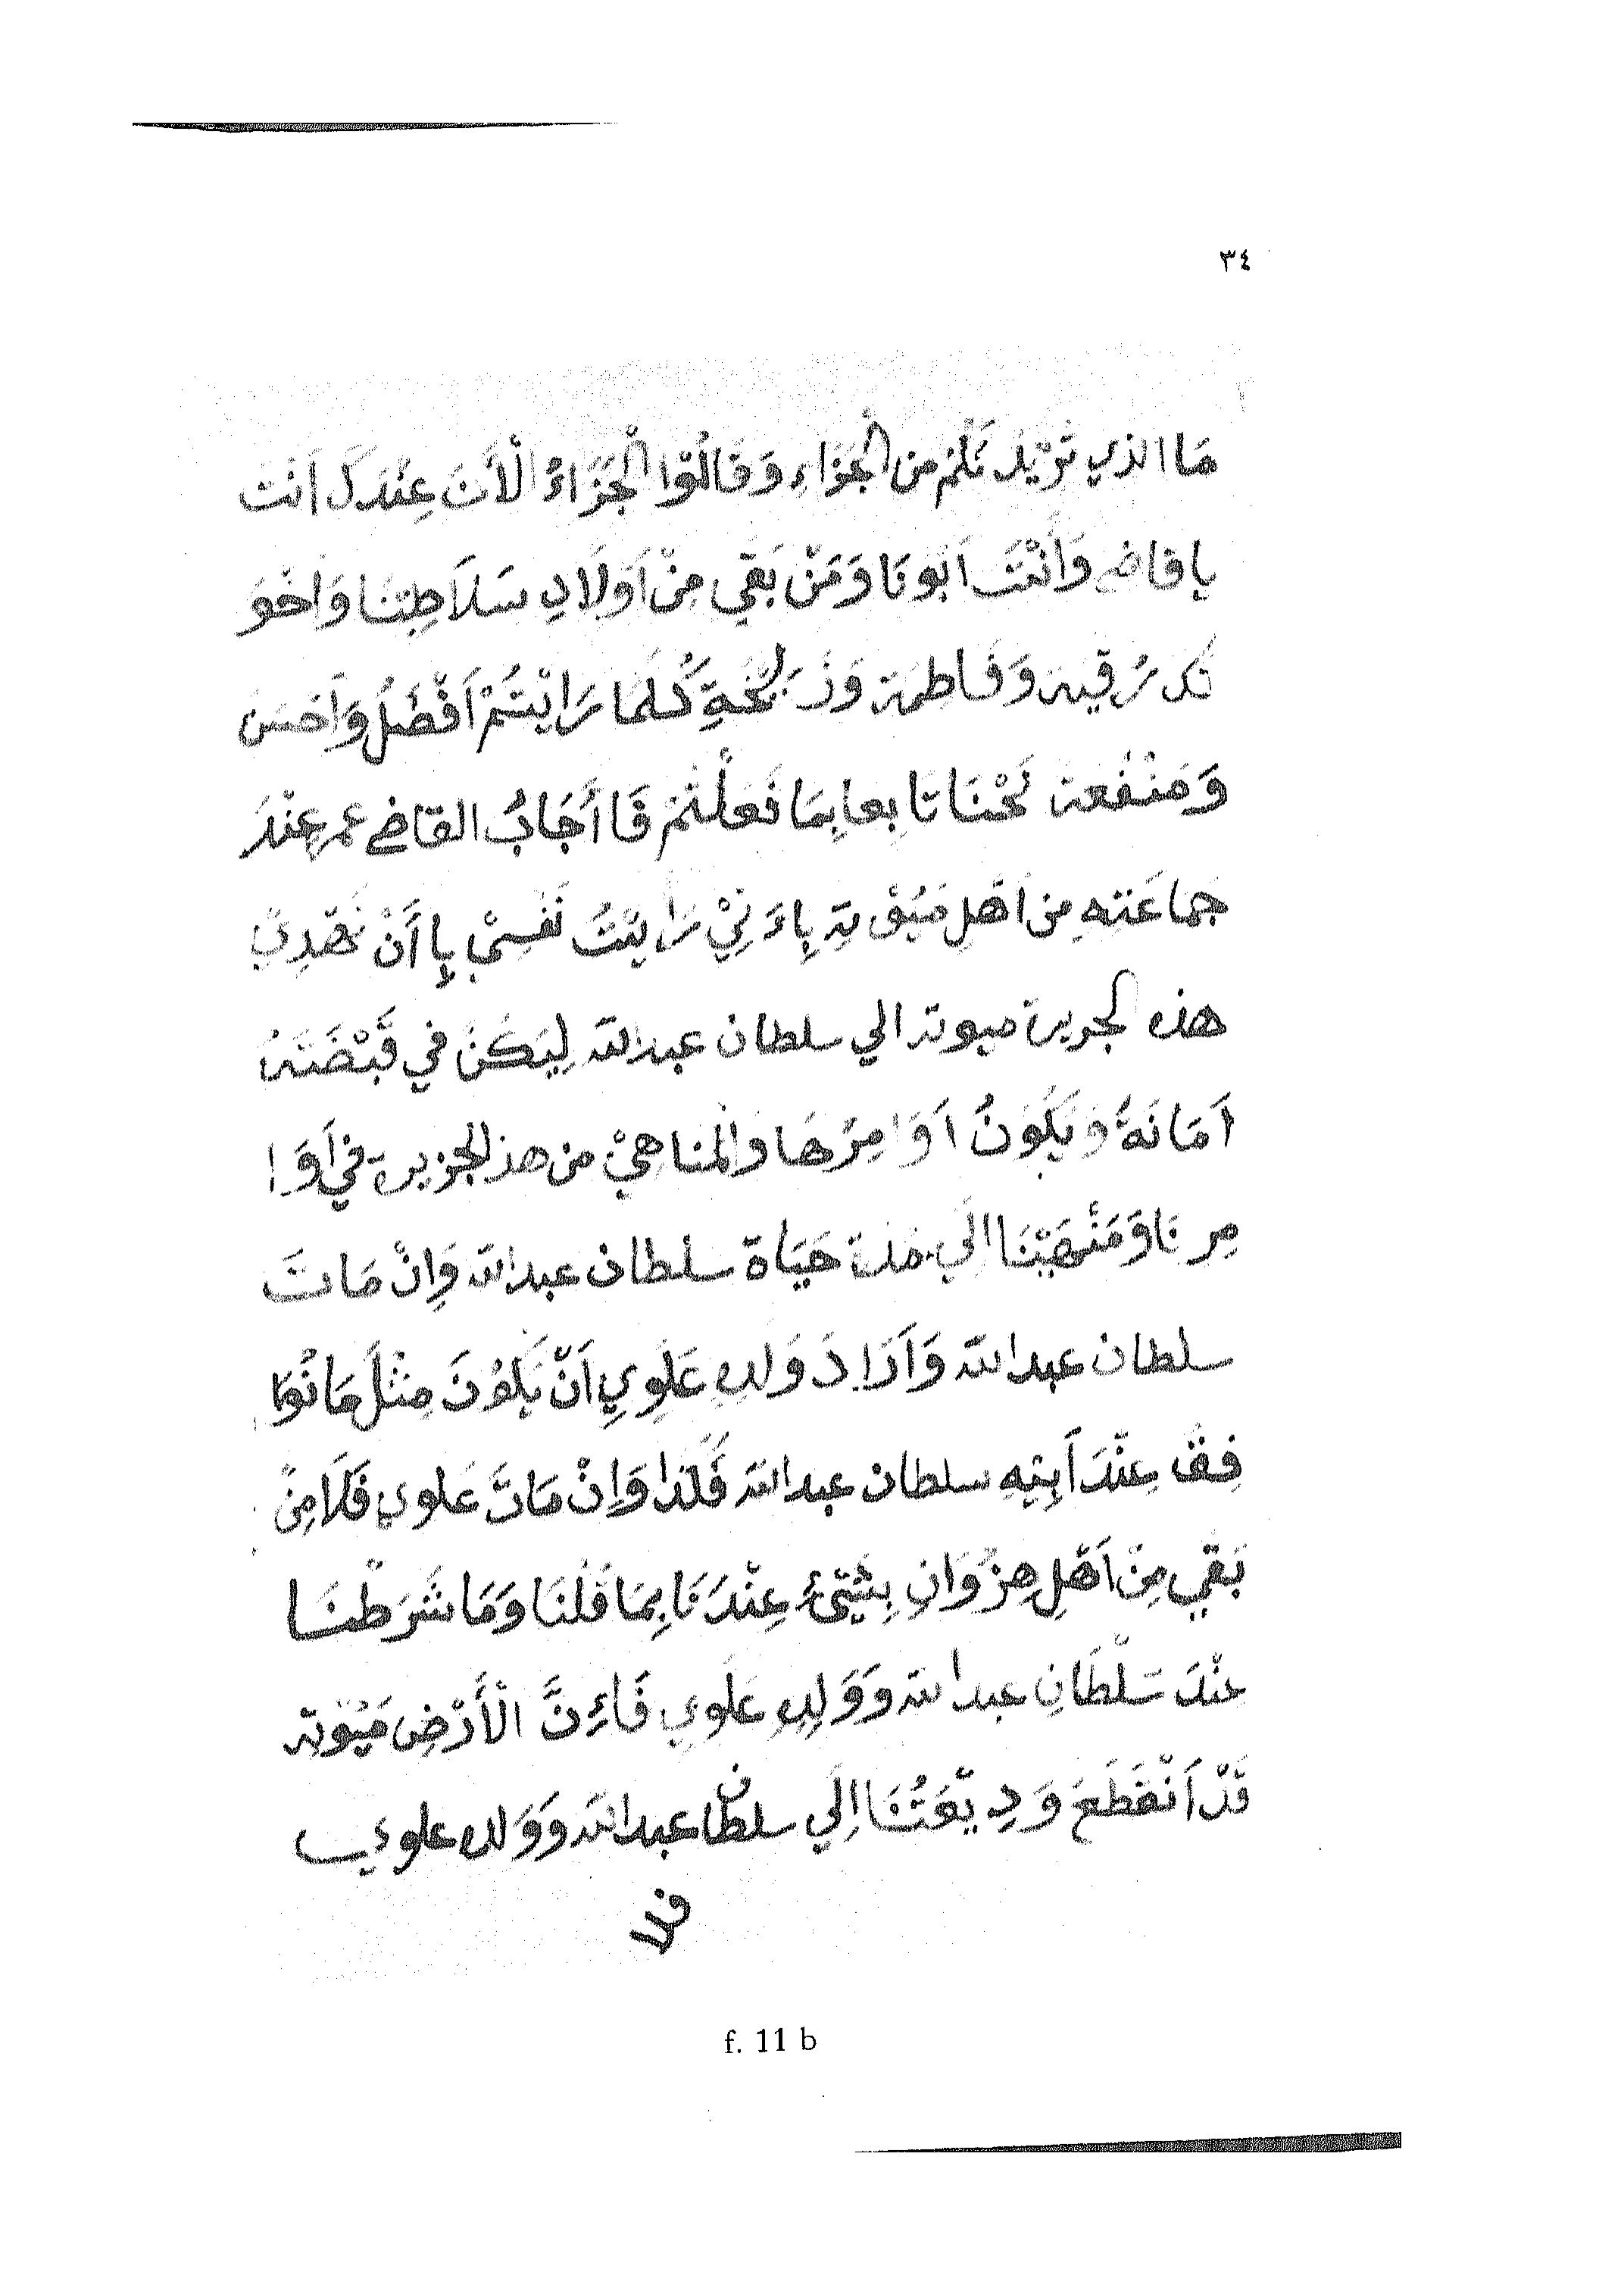 ٣٤
مَا الذي تُرِيْدُ نَكُمْ من الْجَزَاءِ وَ قَالُوْا الْجَزَاءُ الْأَنَ عِنْدَكَ اَنْتَ
يا قاضي وَأَنْتَ اَبُو نَا وَ مَنْ بَقِي مِنْ اَوْلَادِ سَلَاطِنَنَا وَ اخْوَ
تك رُقية وَ فَاطِمَة وَ زَلِيْخَةِ كُلَّمَا رَايْتُمْ اَفْضَلُ وَ اَحْسَن
وَ مَنْفَعة نَحْنَا تَابعا بِمَا فَعَلْتُمْ فَا أَجَابُ القاضي عمر عِنْدَ
جماعَته مِن اَهْلِ مَيُوْتة بِاءَنِّيْ رَايْتُ نَفْسِيْ بِا أَنْ نَهْدِيَ
هذه الجريرة ميوتة الي سلطان عبدالله لِيَكُنْ في قَبْضَتهُ
اَمَانَةً وَ يَكُونُ اَوَامِرُهَا وَ الْمَناهِيْ من هذ الجزيرة في اَوَا
مِرِنَا وَ مَنْهَيْنَا اِلَي مدة حَيَاة سلطان عبدالله وَاِنْ مَاتَ
سلطان عبدالله وَ اَرَادَ وَلده عَلَوِي اَنْ يَكُوْنَ مِثْلَ مَا نُوَا
فِقْ عِنْدَ اَبِيْهِ سلطان عبدالله فَلَهُذا وَاِنْ مَاتَ عَلوي فَلَا مِنْ
بَقِي مِنْ اَهْلِ هِنْزُوَانِ بِشَيْئٍ عِنْدَنَا بِمَا قُلْنَا وَ مَا شَرَطْنَا
عِنْدَ سُلْطَانِ عبدالله وَ وَلِدِهِ عَلَوِي فَاءِنَّ الْأَرْضِ مَيُوْتة
قَدْ اَنْقَطَعَ وَ دِيْعَتُنَا اِلَي سلطان عبدالله وَ وَلده علوي
فلا
f. 11 b